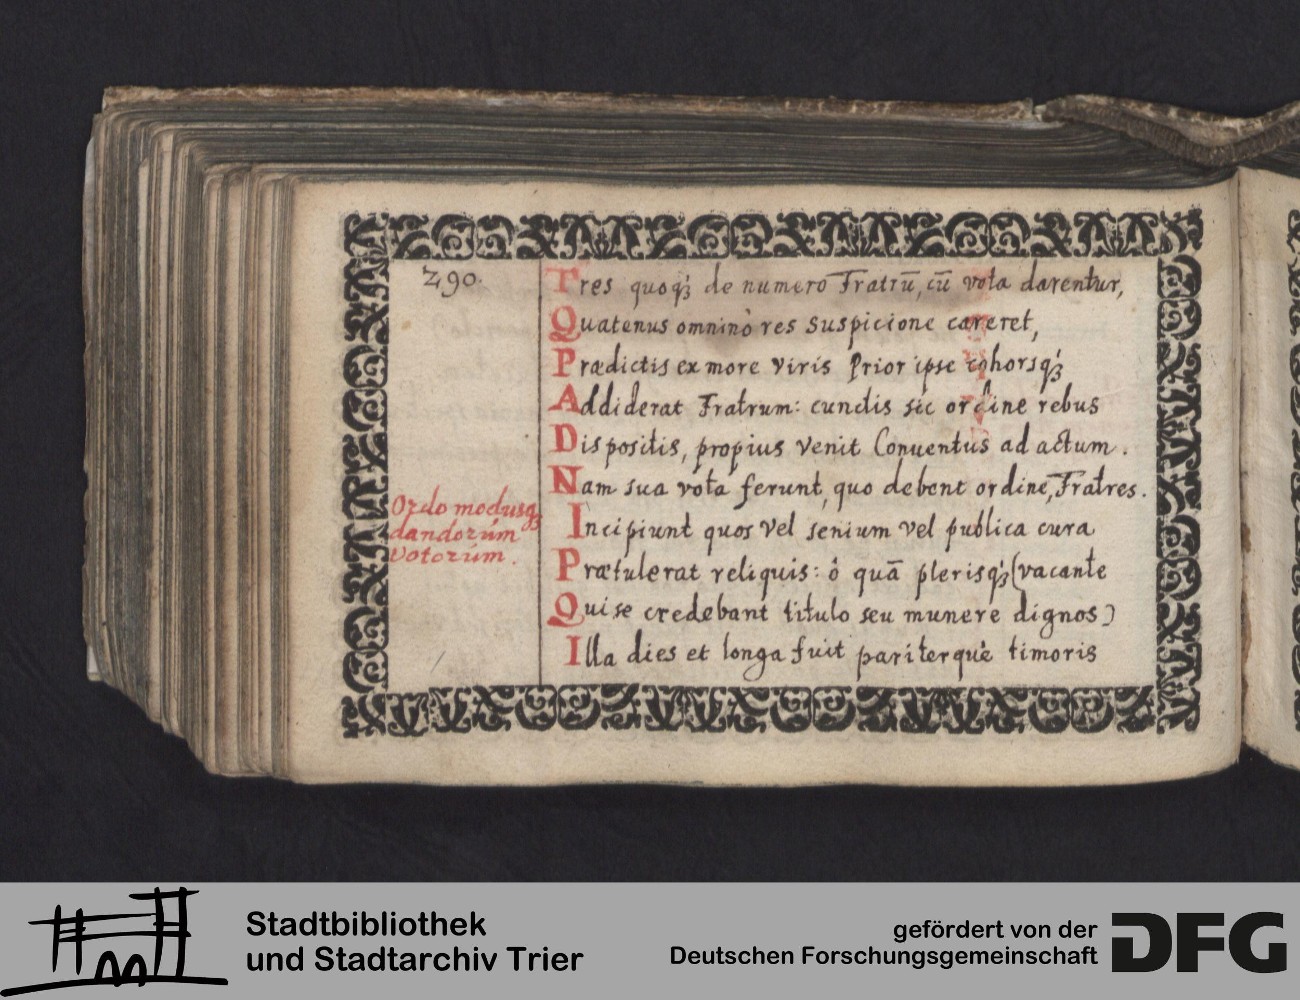 290.
Tres quoqꝫ de numero Fratrū, cū vota darentur,
Quatenus omninò res suspicione careret,
Prædictis ex more viris Prior ipse cohorsqꝫ
Addiderat Fratrum: cunctis sic ordine rebus
Dispositis, propius venit Conuentus ad actum.
Nam sua vota ferunt, quo debent ordine, Fratres.
Ordo modusqꝫ
dandorum
votorum.
Incipiunt quos vel senium vel publica cura
Prætulerat reliquis: ô quā plerisqꝫ (vacante
Qui se credebant titulo seu munere dignos)
Illa dies et longa fuit pariterquè timoris
Stadtbibliothek
und Stadtarchiv Trier
gefördert von der
Deutschen Forschungsgemeinschaft
DFG